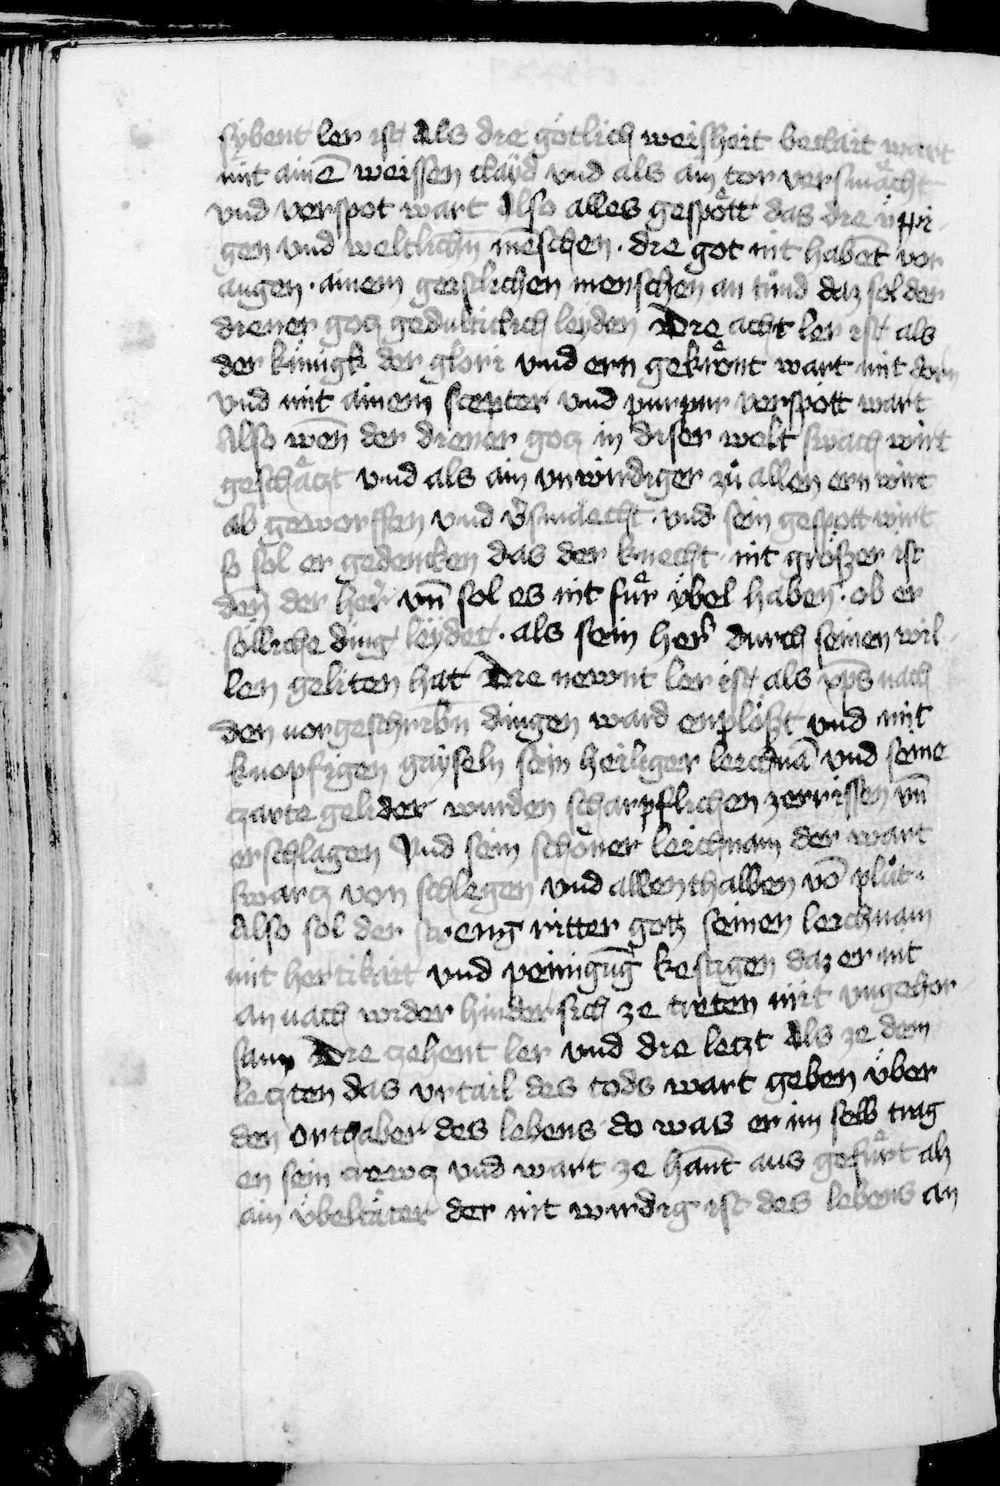 sybent ler ist Als die götlich weisheit beclait wart
mit ainē weissen clayd vnd als ain tor versmächt
vnd verspot wart Also alles gespött das die üppi
gen vnd weltlichn̄ mēschen · die got nit habēt vor
augen · ainem geistlichen menschen an tünd daz sol der
diener gotz gedultiklich leyden Die acht ler ist als
der künigk der glori vnd ern gekrönt wart mit dorn
vnd mit ainem scepter vnd purpur verspott wart
Also wen̄ der diener gotz in diser welt swach wirt
geschätzt vnd als ain vnwirdiger zů allen ern wirt
ab geworffen vnd v̉smaecht · vnd sein gespott wirt
so sol er gedencken das der knecht · nit größer ist
den̄ der her̉ vn̄ sol es nit für übel haben · ob er
sölliche ding leydet · als sein her̉ durch seinen wil
len geliten hat Die newnt ler ist als xp̄s nach
den vorgeschribn̄ dingen ward enplößt vnd mit
knopfigen gayseln sein heiliger leichnā vnd seine
zarte gelider wurden scharpflichen zerrissen vn̄
erschlagen Vnd sein schöner leichnam der wart
swartz von schlegen vnd allenthalben vō plůt ·
Also sol der streng ritter gotz seinen leichnam
mit hertikait vnd peinigūg kestigen daz er nit
an nach wider hinder sich ze treten mit vngehor
sam Die zehent ler vnd die letzt Als ze dem
letzten das vrtail des tods wart geben über
den ortgaber des lebens do was er im selb trag
en sein crewtz vnd wart ze hant aus gefürt alz
ain übeltäter der nit wirdig ist des lebens an